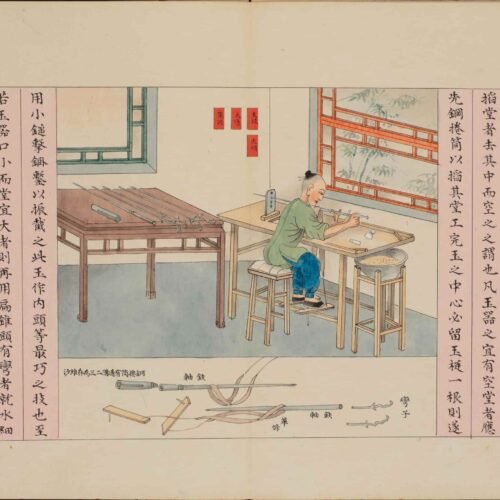 搯堂者去其中而空之之謂也凡玉器之宜有空堂者應
先鋼捲筒以搯其堂工完玉之中心必留玉梃一根則遂
用小鎚擊鋼鏨以振截之此玉作內頭等最巧之技也至
若玉器口小而堂宜大者則再用扁錐頭有彎者就水細
鋼捲筒有透溝二三為存細沙
鐵軸
鐵軸
彎子